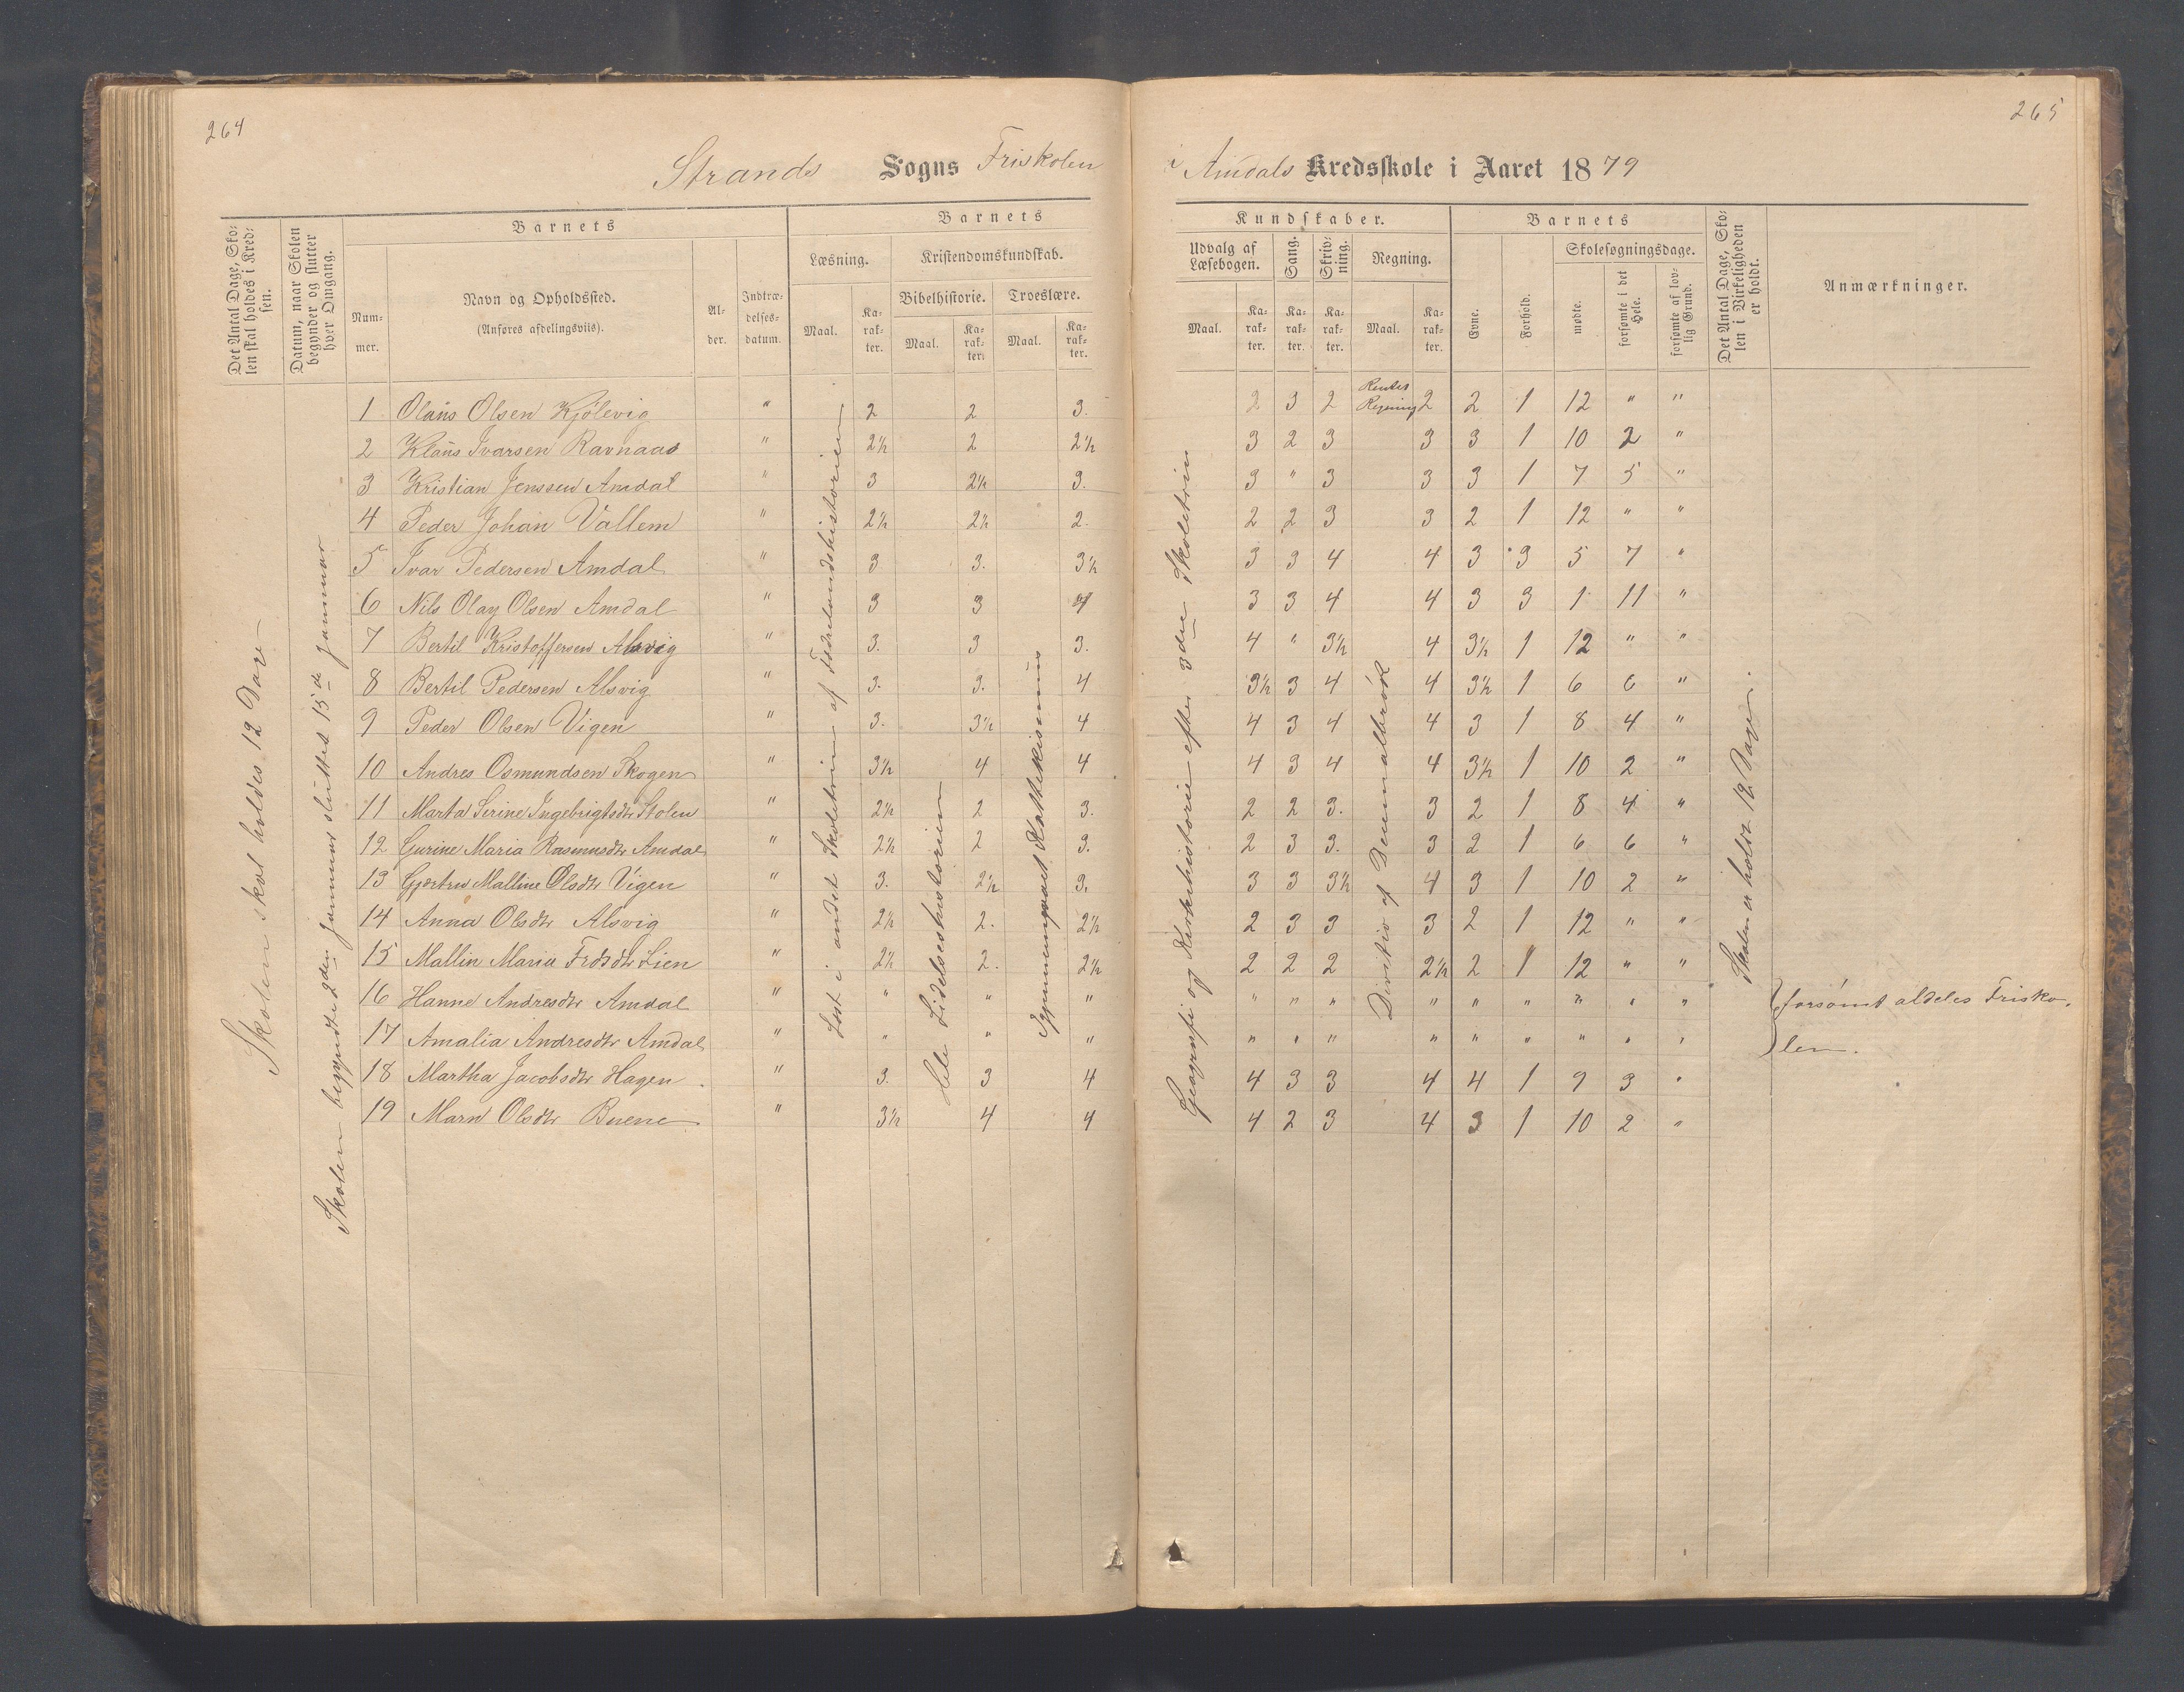 264
265
Strands Sogns Friskolen
i Amdals Kredsskole i Aaret 1879
Det Antal Dage, Sko-
len skal holdes i Kred-
sen.
Datum, naar Skolen
begynder og slutter
hver Omgang.
Barnets
Num-
mer.
Navn og Opholdssted.
(Anføres afdelingsviis).
Al-
der.
Indtræ-
delses-
datum.
Barnets
Læsning.
Kristendomskundskab.
Bibelhistorie.
Troeslære.
Maal.
Ka-
rak-
ter.
Maal.
Ka-
rak-
ter.
Maal.
Ka-
rak-
ter.
Kundskaber.
Udvalg af
Læsebogen.
Sang.
Skriv-
ning.
Regning.
Maal.
Ka-
rak-
ter.
Ka-
rak-
ter.
Ka-
rak-
ter.
Maal.
Ka-
rak-
ter.
Barnets
Evne.
Forhold.
Skolesøgningsdage.
mødte.
forsømte i det
Hele.
forsømte af lov-
lig Grund.
Det Antal Dage, Sko-
len i Virkeligheden
er holdt.
Anmærkninger.
Skolen skal holdes 12 Dage
Skolen begyndte 2den Januar sluttet 15de Januar
Læst i andet Skoletrin af Fædrelandshistorien
Hele Lidelseshistorien
Igjennemgaaet Katekismus
Geografi og Kirkehistorie efter 3die Skoletrin
Renter
Regning
Division af Decimalbrøk
Skolen er holdt 12 Dage.
1 Olaus Olsen Kjølevig " 2 2 3. 2 3 2 2 2 1 12 " "
2 Klaus Ivarsen Ravnaas " 2½ 2 2½ 3 2 3 3 3 1 10 2 "
3 Kristian Jenssen Amdal " 3 2½ 3. 3 " 3 3 3 1 7 5 "
4 Peder Johan Vallem " 2½ 2½ 2. 2 2 3 3 2 1 12 " "
5 Ivar Pedersen Amdal " 3 3. 3½ 3 3 4 4 3 3 5 7 "
6 Nils Olay Olsen Amdal " 3 3 4 3 3 4 4 3 3 1 11 "
7 Bertil Kristoffersen Alsvig " 3. 3 3. 4 " 3½ 4 3½ 1 12 " "
8 Bertil Pedersen Alsvig " 3. 3. 4 3½ 3 4 4 3½ 1 6 6 "
9 Peder Olsen Vigen " 3. 3½ 4 4 3 4 4 3 1 8 4 "
10 Andres Osmundsen Skogen " 3½ 4 4 4 3 4 4 3½ 1 10 2 "
11 Marta Serine Ingebrigtsdtr Stolen " 2½ 2 3. 2 2 3. 3 2 1 8 4 "
12 Gurine Maria Rasmusdtr Amdal " 2½ 2 3. 2 3 3. 3 2 1 6 6 "
13 Gjertru Malline Olsdtr Vigen " 3. 2½ 3. 3 3 3½ 4 3 1 10 2 "
14 Anna Olsdtr Alsvig " 2½ 2. 2½ 2 3 3 3 2 1 12 " "
15 Mallin Maria Frdsdtr Lien " 2½ 2. 2½ 2 2 2 2½ 2 1 12 " "
16 Hanne Andresdtr Amdal " " " " " " " " " " " " " forsømt aldeles Frisko-
17 Amalia Andresdtr Amdal " " " " " " " " " " " " " len.
18 Martha Jacobsdtr Hagen " 3. 3 4 4 3 3 4 4 1 9 3 "
19 Marn Olsdtr Buene " 3½ 4 4 4 2 3 4 3 1 10 2 "